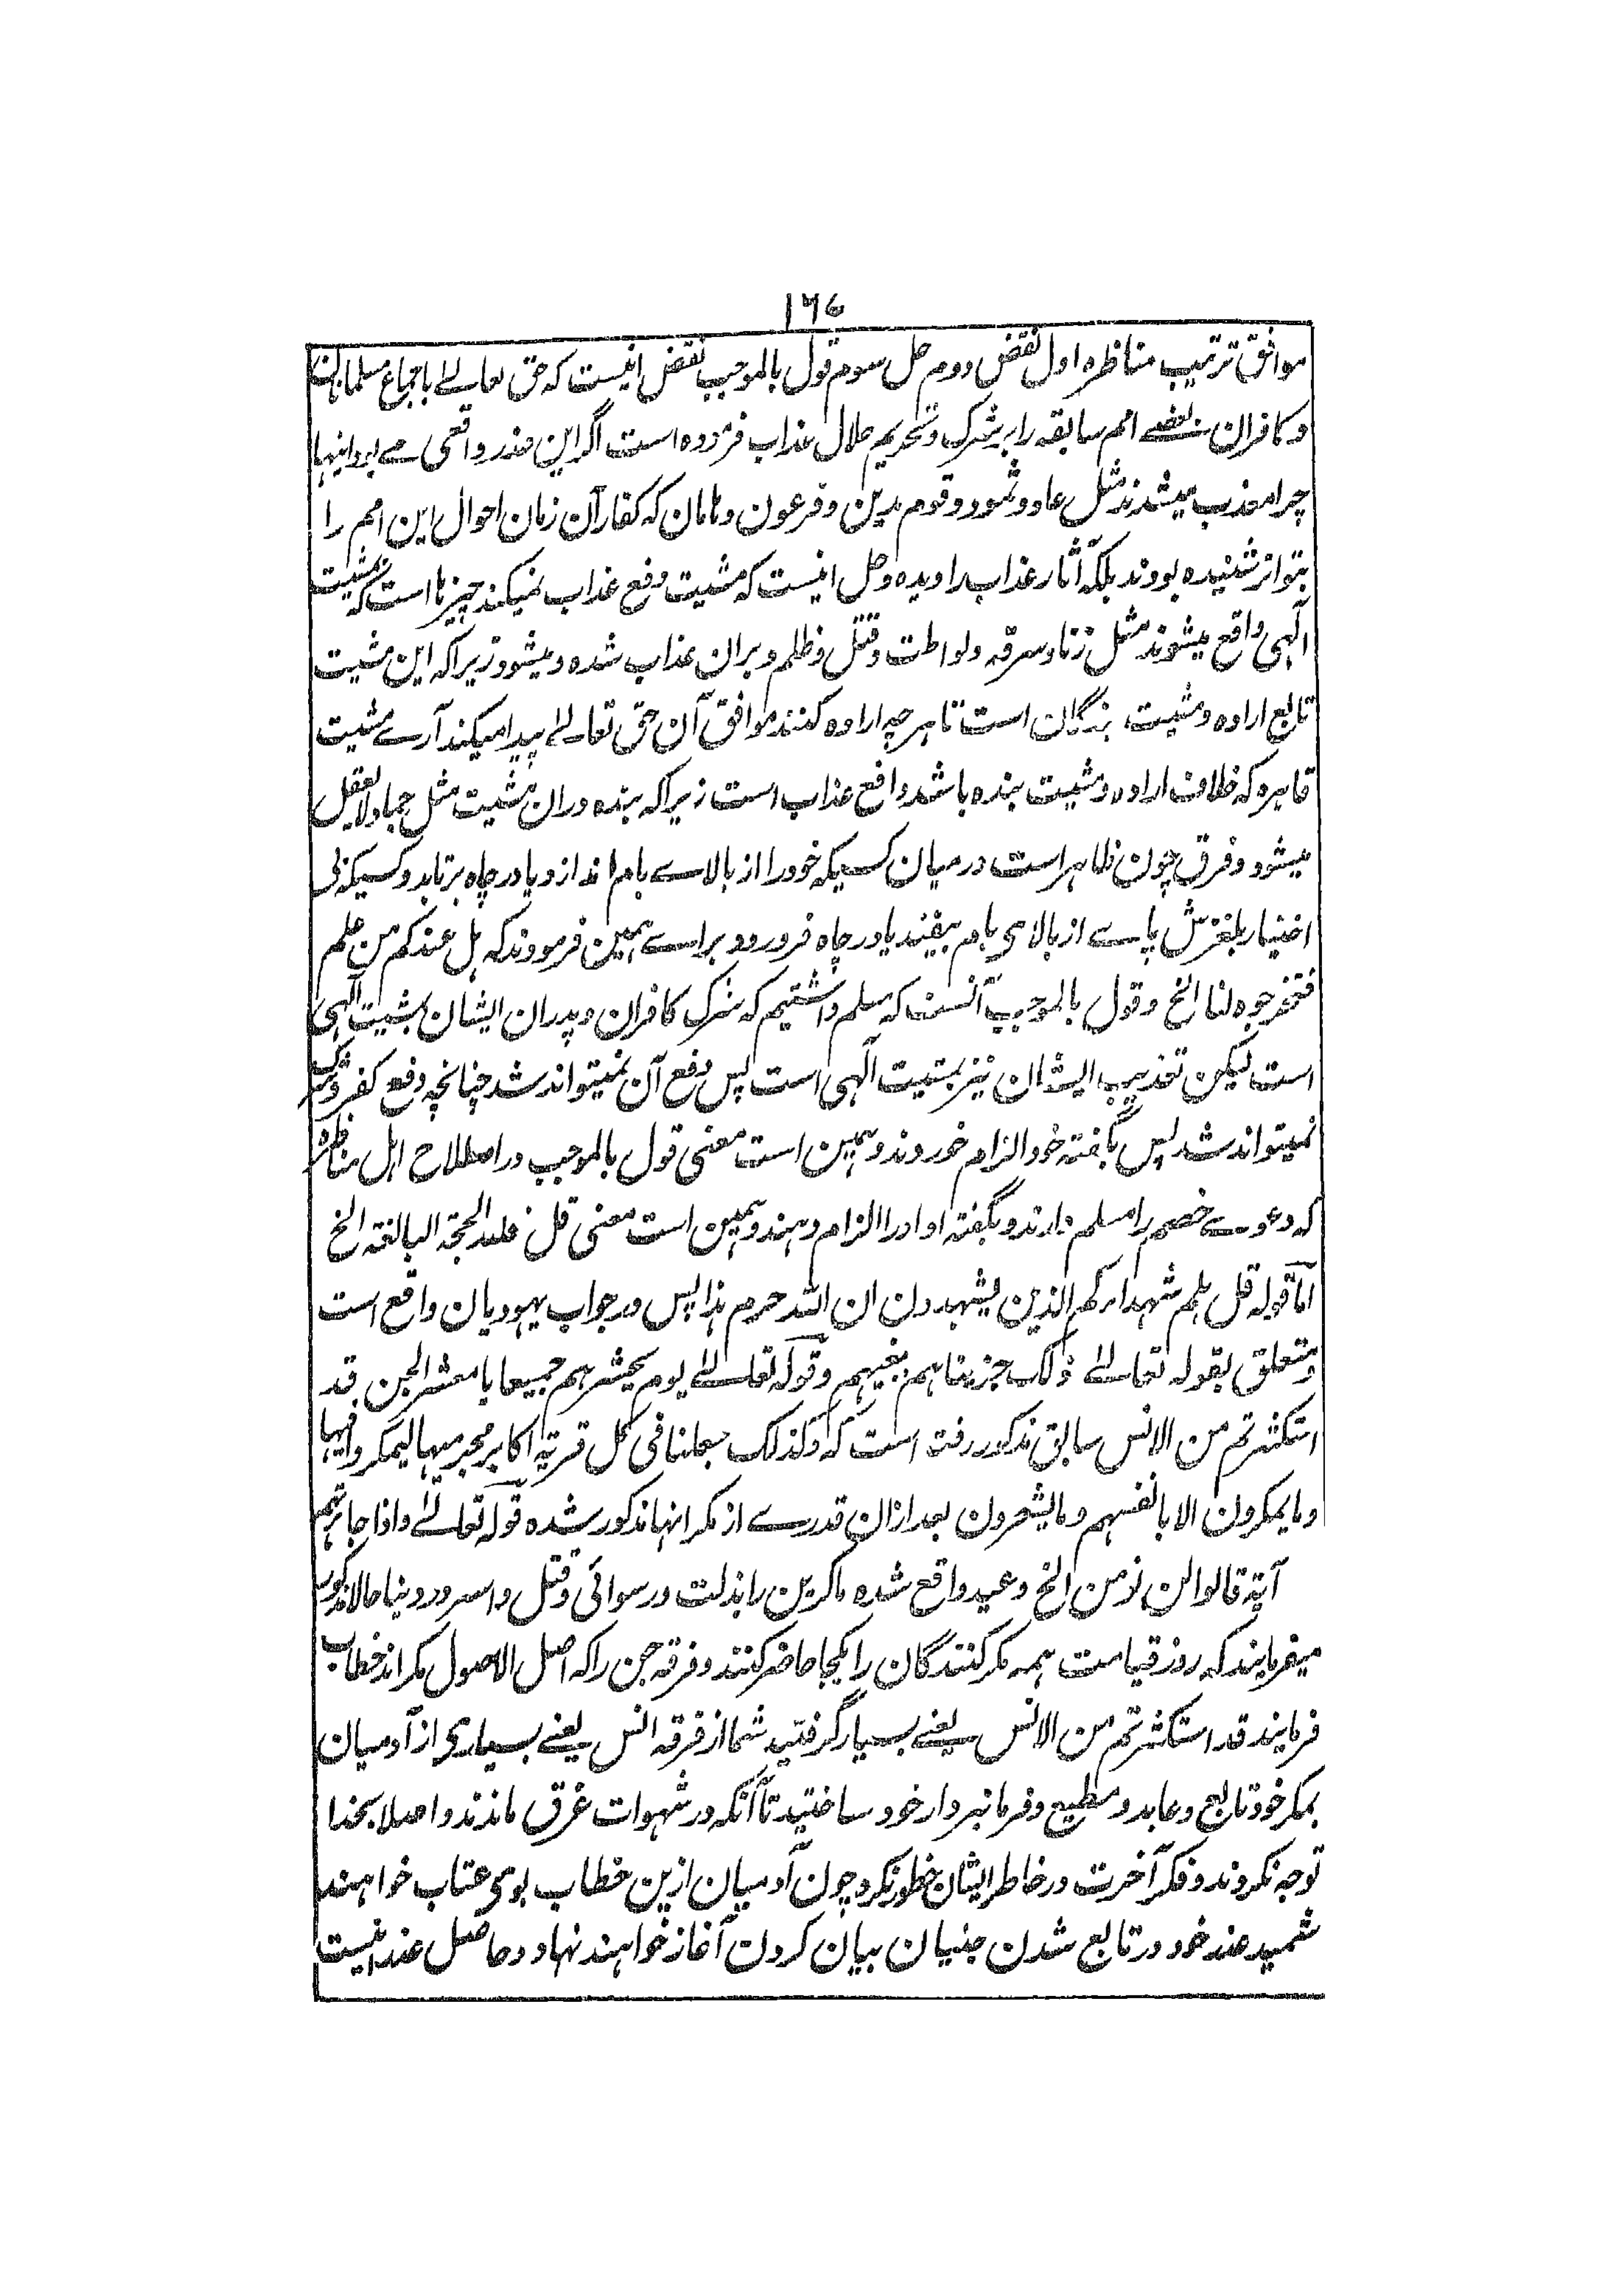 ۱۶۷
موافق ترتیب مناظره اول نقض دوم حل سوم قول بالموجب نقض اینست که حق تعالے باجماع مسلمانان
و کافران بعضے امم سابقه را بر شرک و تحریم حلال عذاب فرموده است اگر این عذر واقعی مے بود اینها
چرا معذب میشدند مثل عاد و ثمود و قوم مدین و فرعون و هامان که کفار آن زمان احوال این امم را
بتواتر شنیده بودند بلکه آثار عذاب را دیده و حل اینست که مشیت دفع عذاب نمیکند چیزها است که بمشیت
الٰهی واقع میشوند مثل زنا و سرقه و لواطت و قتل و ظلم و بران عذاب شده و میشود زیرا که این مشیت
تابع اراده و مشیت بندگان است تا هر چه اراده کنند موافق آن حق تعالے پیدا میکند آرے مشیت
قاهره که خلاف اراده و مشیت بنده باشد دافع عذاب است زیرا که بنده دران مشیت مثل جماد لایعقل
میشود و فرق چون ظاهر است درمیان کسیکه خود را از بالاے بام اندازد یا در چاه برتابد و کسیکه بی
اختیار بلغزش پاے از بالای بام بیفتد یا در چاه فرو رود براے همین فرمودند که هل عندکم من علم
فتخرجوه لنا الخ و قول بالموجب آنست که مسلم داشتیم که شرک کافران و پدران ایشان بمشیت الٰهی
است لیکن تعذیب ایشان نیز بمشیت الٰهی است پس دفع آن نمیتواند شد چنانچه دفع کفر و شرک
نمیتواند شد پس بگفته خود الزام خوردند و همین است معنی قول بالموجب در اصطلاح اهل مناظره
که دعوے خصم را مسلم دارند و بگفته او او را الزام دهند و همین است معنی قل فلله الحجة البالغة الخ
اما قوله قل هلم شهداءکم الذین یشهدون ان الله حرم هذا پس در جواب یهودیان واقع است
و متعلق بقوله تعالے ذلک جزیناهم ببغیهم و قوله تعالے یوم یحشرهم جمیعا یا معشر الجن قد
استکثرتم من الانس سابق مذکور رفته است که و کذلک جعلنا فی کل قریة اکابر مجرمیها لیمکروا فیها
و ما یمکرون الا بانفسهم و ما یشعرون بعد ازان قدرے از مکر انها مذکور شده قوله تعالے و اذا جاءتهم
آیة قالوا لن نؤمن الخ وعید واقع شده ماکرین را بذلت و رسوائی و قتل و اسر در دنیا حالا مذکور
میفرمایند که روز قیامت همه مکر کنندگان را یکجا حاضر کنند و فرقه جن را که اصل الاصول مکر اند خطاب
فرمایند قد استکثرتم من الانس یعنے بسیار گرفتید شما از فرقه انس یعنے بسیاری از آدمیان
بمکر خود تابع و عابد و مطیع و فرمانبردار خود ساختید تا آنکه در شهوات غرق ماندند و اصلا بخدا
توجه نکردند و فکر آخرت در خاطر ایشان خطور نکرد چون آدمیان ازین خطاب بوی عتاب خواهند
شمید عذر خود در تابع شدن جنیان بیان کردن آغاز خواهند نهاد و حاصل عذر اینست